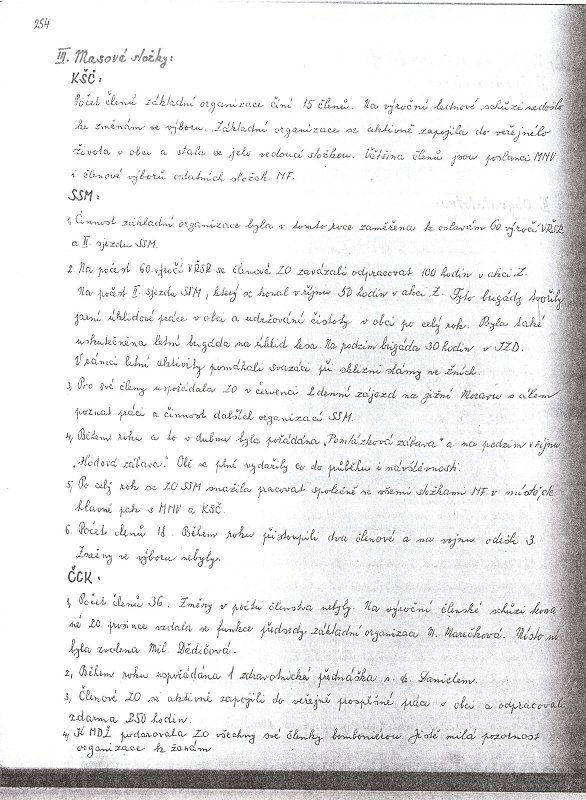 254
III. Masové složky:
KSČ:
Počet členů základní organizace činí 15 členů. Na výroční lednové schůzi nedošlo
ke změnám ve výboru. Základní organizace se aktivně zapojila do veřejného
života v obci a stala se jeho vedoucí složkou. Většina členů jsou poslanci MNV
i členové výborů ostatních složek NF.
SSM:
1. Činnost základní organizace byla v tomto roce zaměřena k oslavám 60. výročí VŘSR
a II. sjezdu SSM.
2. Na počest 60. výročí VŘSR se členové ZO zavázali odpracovat 100 hodin v akci Z.
Na počest II. sjezdu SSM, který se konal v říjnu 50 hodin v akci Z. Tyto brigády tvořily
jarní úklidové práce v obci a udržování čistoty v obci po celý rok. Byla také
uskutečněna letní brigáda na úklid lesa. Na podzim brigáda 30 hodin v JZD.
V rámci letní aktivity pomáhali svazáci při sklizni slámy ve žních.
3, Pro své členy uspořádala ZO v červenci 2 denní zájezd na jižní Moravu s cílem
poznat práci a činnost dalších organizací SSM.
4, Během roku a to v dubnu byla pořádána „Pomlázková zábava" a na podzim v říjnu
„Hodová zábava." Obě se plně vydařily co do průběhu i návštěvnosti.
5, Po celý rok se ZO SSM snažila pracovat společně se všemi složkami NF v místě,
hlavně pak s MNV a KSČ.
6. Počet členů 18. Během roku přistoupili dva členové a na vojnu odešli 3.
Změny ve výboru nebyly.
ČČK:
1, Počet členů 36. Změny v počtu členstva nebyly. Na výroční členské schůzi kona-
né 20. prosince vzdala se funkce předsedy základní organizace M. Marečková. Místo ní
byla zvolena Mil. Dědičová.
2, Během roku uspořádána 1 zdravotnická přednáška s Danielem.
3, Členové ZO se aktivně zapojili do veřejně prospěšné práce v obci a odpracovali
zdarma 250 hodin.
4, K MDŽ podarovala ZO všechny své členky bombonierou. Jistě milá pozornost
organizace k ženám.